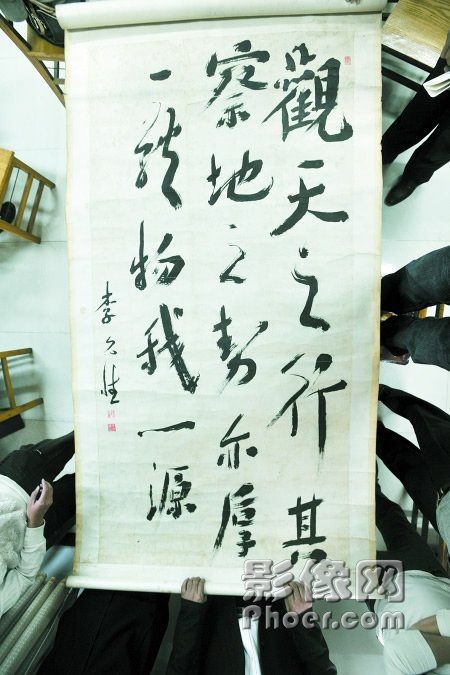 觀天之行其
察地之勢亦厚
一物我一源
李
影像网
Phoer.com